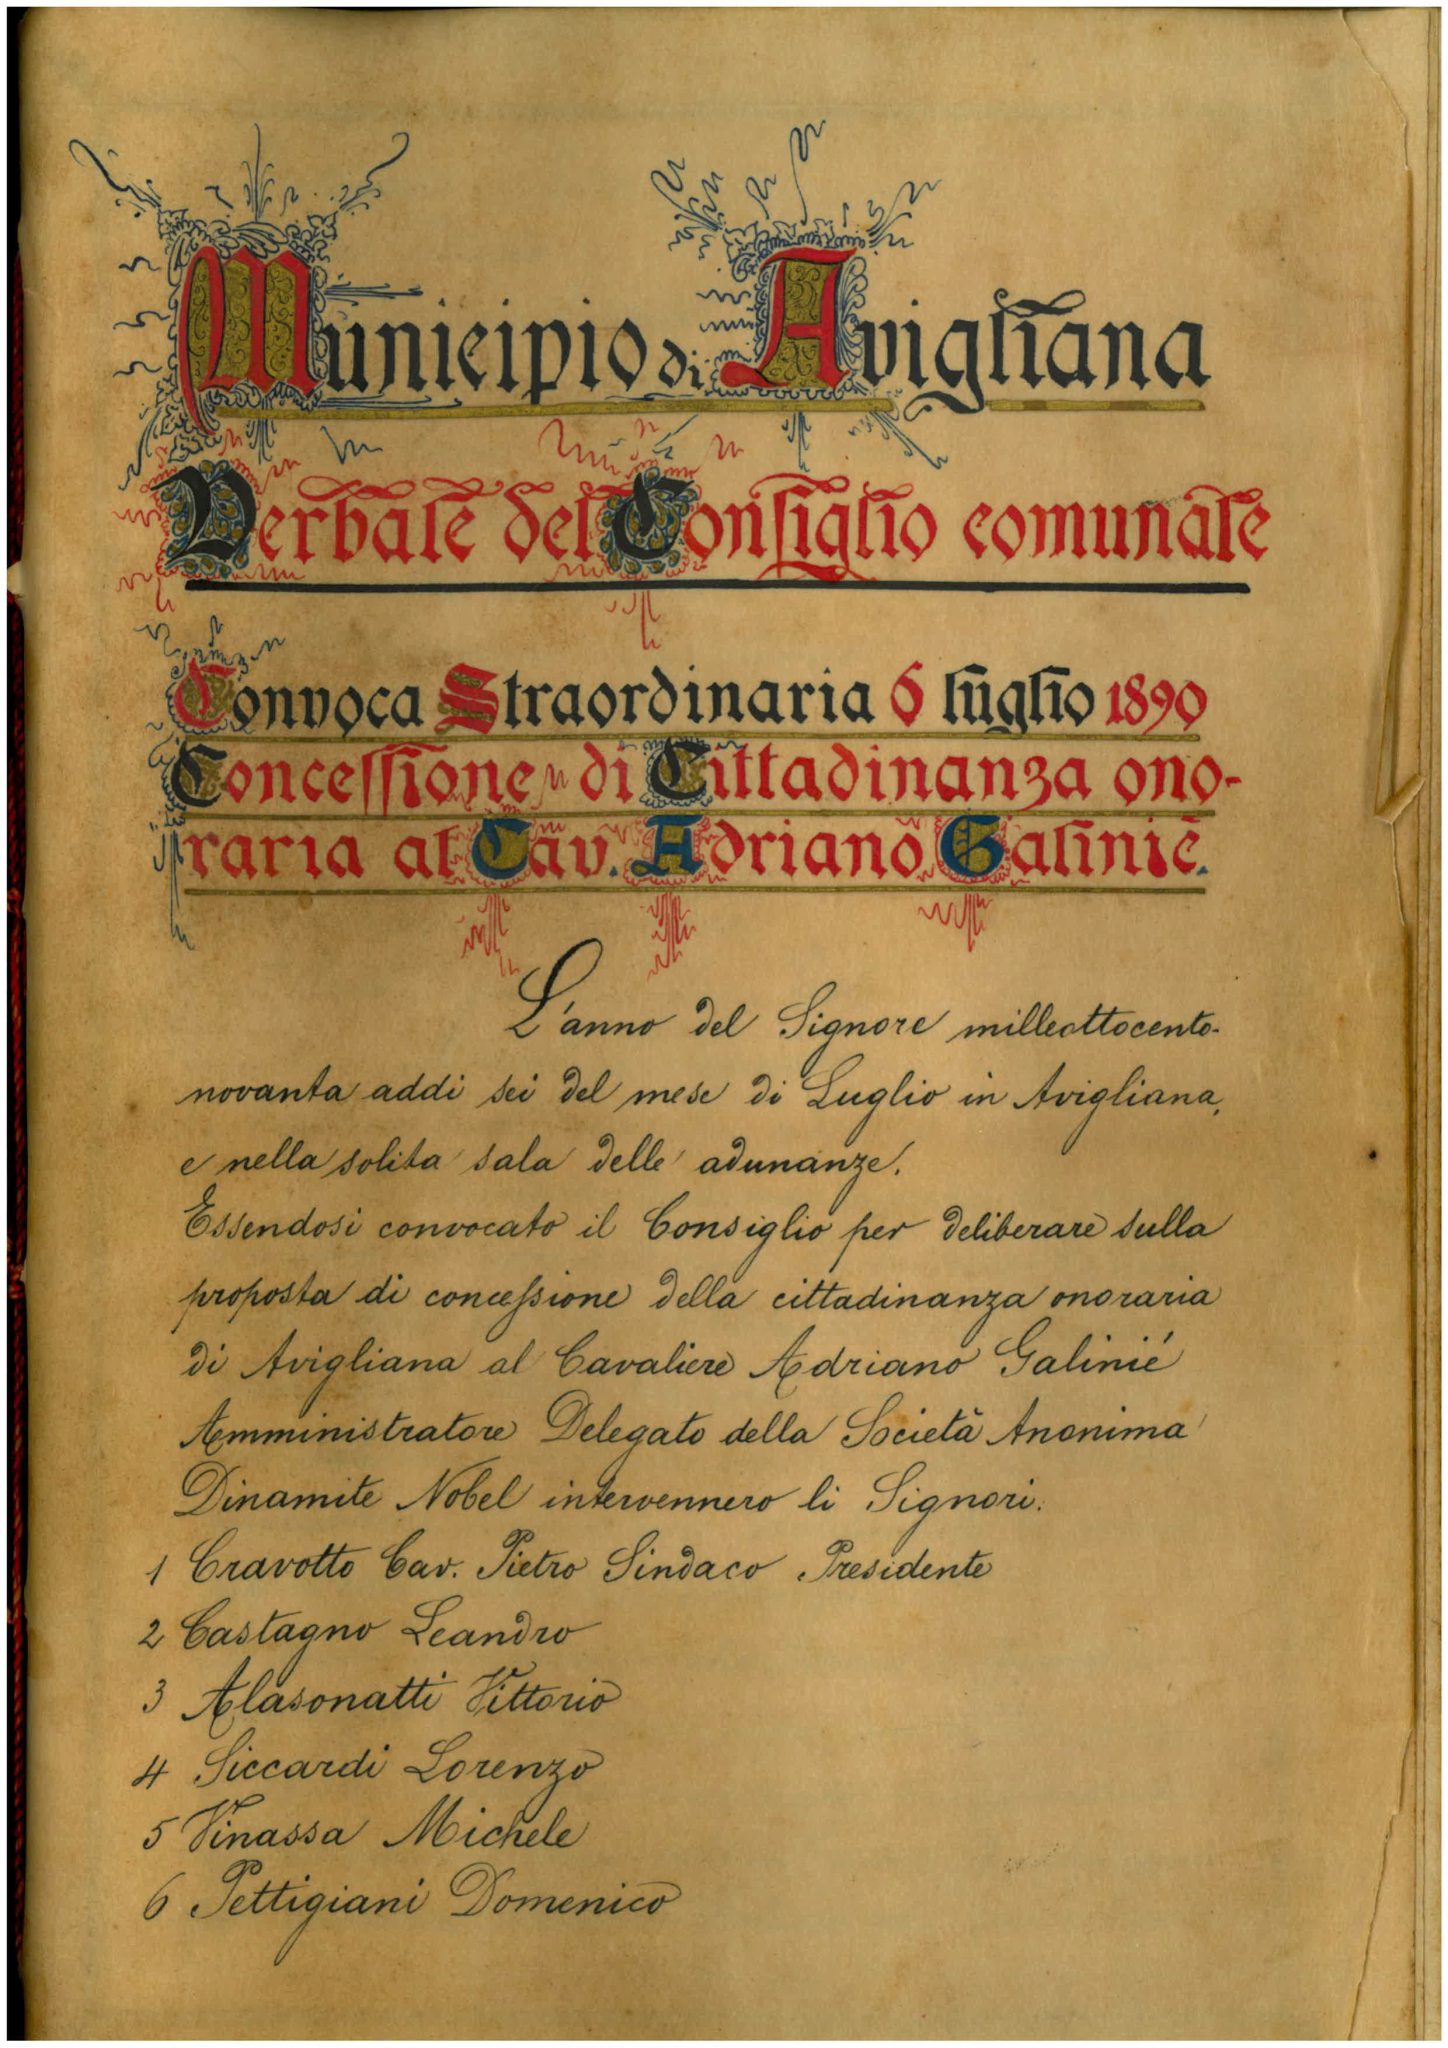 Municipio di Avigliana
Verbale del Consiglio comunale
Convoca Straordinaria 6 luglio 1890
Concessione di Cittadinanza ono-
raria al Cav. Adriano Galinié.
L'anno del Signore milleottocento-
novanta addi sei del mese di Luglio in Avigliana,
e nella solita sala delle adunanze.
Essendosi convocato il Consiglio per deliberare sulla
proposta di concessione della cittadinanza onoraria
di Avigliana al Cavaliere Adriano Galinié
Amministratore Delegato della Società Anonima
Dinamite Nobel intervennero li Signori.
1 Cravotto Cav. Pietro Sindaco Presidente
2 Castagno Leandro
3 Alasonatti Vittorio
4 Siccardi Lorenzo
5 Vinassa Michele
6 Pettigiani Domenico